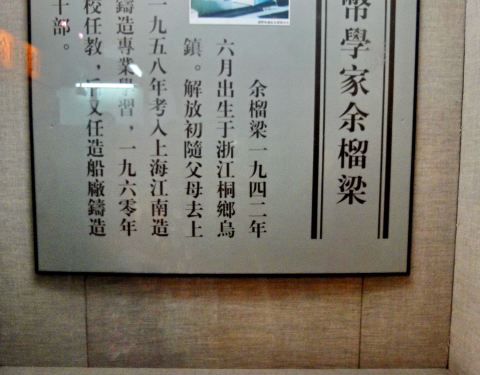 幣學家余榴梁
余榴梁一九四二年
六月出生于浙江桐鄉烏
鎮。解放初隨父母去上
一九五八年考入上海江南造
鑄造專業學習，一九六零年
校任教，后又任造船廠鑄造
十部。